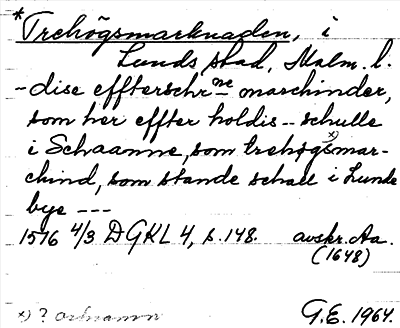 *Trehögsmarknaden, i
Lunds stad, Malm. l.
- dise effterschrne marchinder,
som her effter holdis -- schulle
i Schaanne, som trehøgsx)mar-
chind, som stande schall i Lunde
bye ---
1516 4/3 DGKL 4, s. 148. avskr. Aa.
(1648)
x) ? ortnamn G.E. 1964.